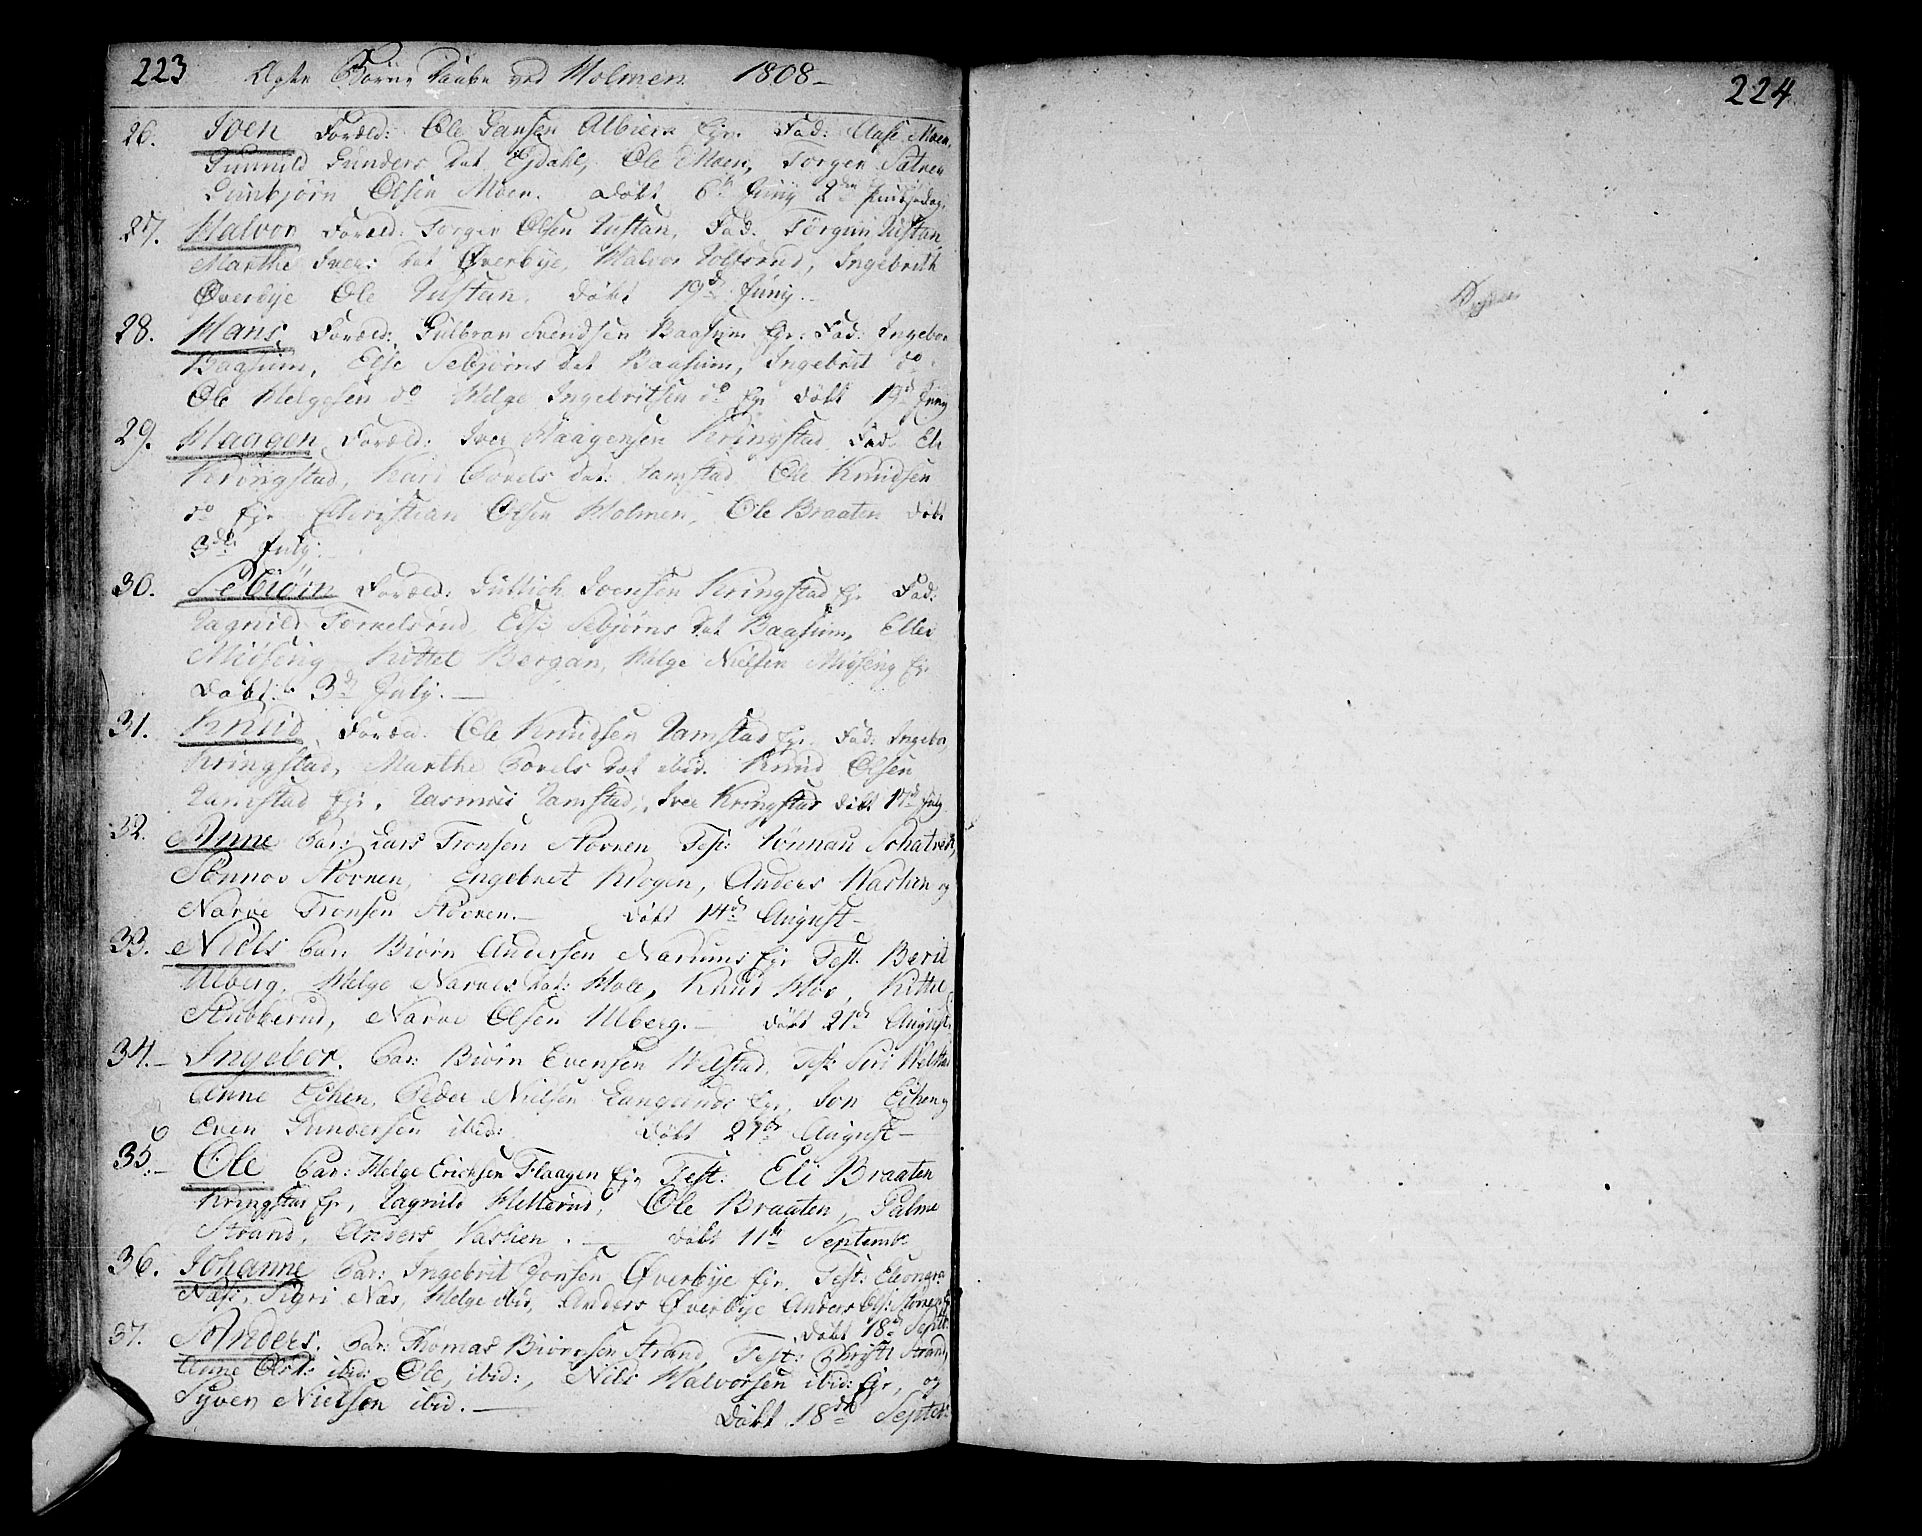 223 Ægte Børns Daabe ved Holmen 1808 –
224
26. Joen Foræld: Ole Hansen Albiern Egr. Fad: Aase Moen,
Gunnild Gunders dat Egdahl, Ole Moen, Torger Sætren
Gunbjørn Olsen Moen. Døbt 6th Junij 2den Pintsedag.
27. Halvor Foræld: Torger Olsen Rustan, Fad: Torgun Rustan,
Marthe Iver: dat Øverbÿe, Halvor Rolfsrud, Ingebreth
Øverbÿe Ole Rustan. døbt 19d Junij. –
28. Hans. Foræld: Gulbran Svendsen Baasum Egr: Fad: Ingebor
Baasum, Else Sebjørns dat Baasum, Ingebrit do
Ole Helgesen do Helge Ingebritsen do Egr døbt 19d Junij
29. Haagen Foræld: Iver Haagensen Kringstad Fad: Eli
Kringstad, Kari Povels dat: Ramstad Ole Knudsen
do Egr Christian Olsen Holmen, Ole Braaten døbt
3die July. –
30. Sebiørn Foræld: Gullich Joensen Kringstad Egr Fad:
Ragnild Torkelsrud, Else Sebjørns dat Baasum, Eller
Miøseng Kittel Bergan, Helge Nielsen Miøseng Egr
Døbt 3d July. –
31. Knud Foræld. Ole Knudsen Ramstad Egr. Fad: Ingebor
Kringstad, Marthe Povels dat ibid. Knud Olsen
Ramstad Egr, Rasmus Ramstad, Iver Kringstad døbt 17d July
32. Anne Par: Lars Tronsen Stovnen Test: Rønnau Schatvedt,
Rønnov Stovnen, Engebret Krogen, Anders Hashen og
Narve Tronsen Stovnen. – Døbt 14d August –
33. Niels Par: Biørn Andersen Narums Egr Test. Berit
Ulberg, Helge Narves dat: Hole, Knud Moe, Kittel
Stubberud, Narve Olsen Ulberg. – døbt 21d August.
34. – Ingebor. Par: Biørn Evensen Velstad, Test: Siri Velstad
Anne Echen, Peder Nielsen Langerud Egr, Jon Echen og
Even Gundersen ibid: døbt 27de August –
35. – Ole Par: Helge Erichsen Flaagen Egr Test: Eli Braaten
Kringstad Egr, Ragnild Metterud, Ole Braaten, Palme
Strand, Anders Vashien. – døbt 11th Septembr
36. Johanne Par: Ingebrit Jonsen Øverbÿe Egr. Test:
Næs, Sigri Næs, Helge ibid, Anders Øverbÿe Anders
Døbt 18d Septbr
37. Anders. Par: Thomas Biørnsen Strand, Test: Christi Strand,
Anne Olsd: ibid: Ole, ibid:, Nils Halvorsen ibid: Egr, og
Syver Nielson ibid. – Døbt 18de Septbr